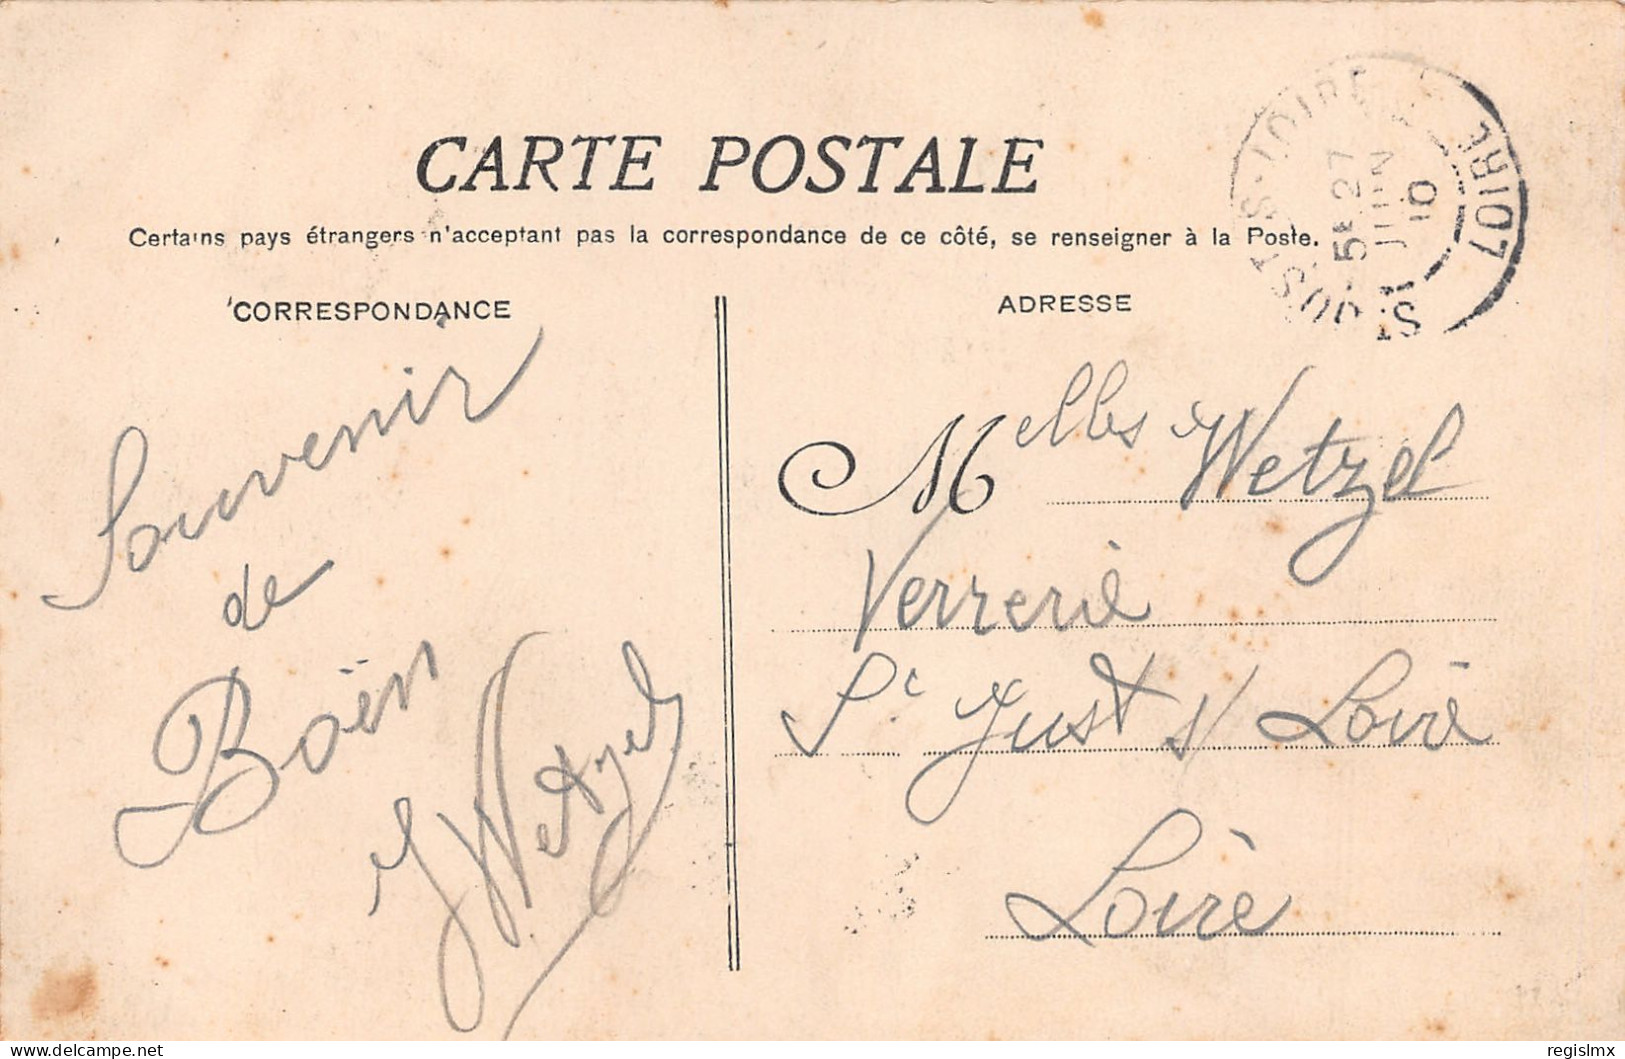 CARTE POSTALE
Certains pays étrangers n'acceptent pas la correspondance de ce côté, se renseigner à la Poste.
CORRESPONDANCE
Souvenir
de
Boën
J Wetzel
ADRESSE
Melles Wetzel
Verrerie
St Just s/ Loire
Loire
ST JUST-S-LOIRE
LOIRE
27
JUIN
10
delcampe.net
regislmx